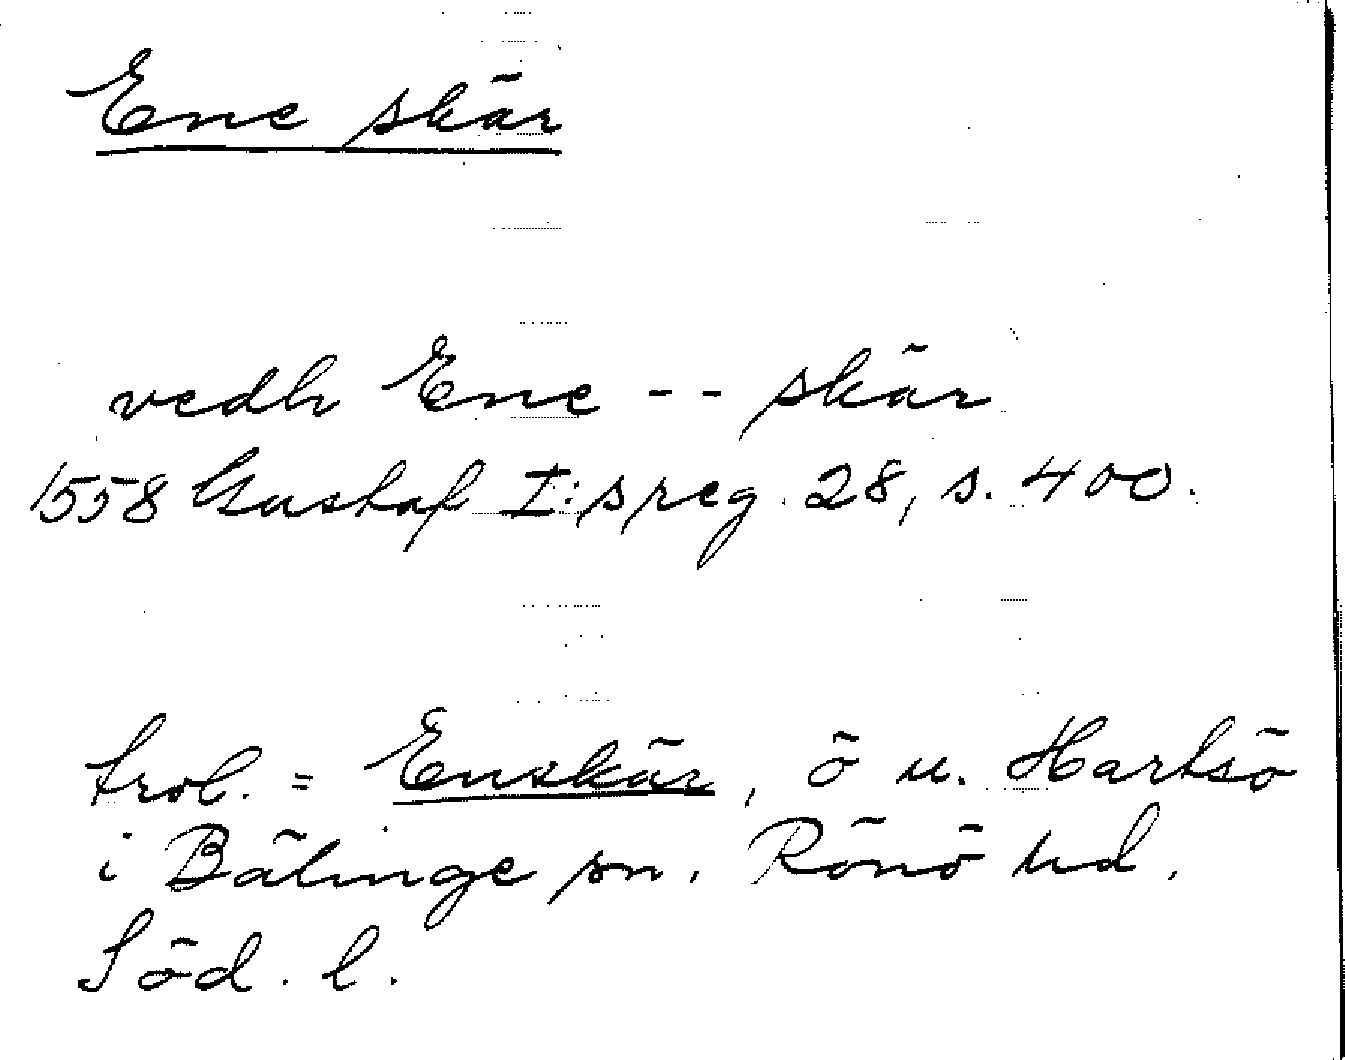 Ene skär
vedh Ene -- skär
1558 Gustaf I:s reg. 28, s. 400.
trol. = Enskär, ö u. Hartsö
i Bälinge sn. Rönö hd.
Söd. l.